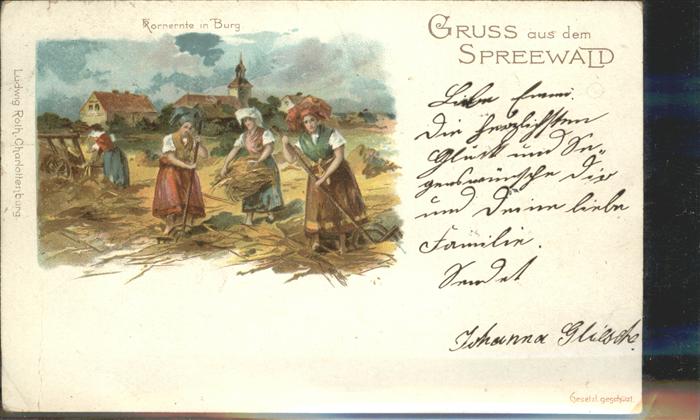 Kornernte in Burg.
GRUSS aus dem
SPREEWALD
Liebe Emmi.
Die herzlichsten
Glück und Se-
genswünsche Dir
und Deine liebe
Familie.
Sendet
Johanna
Ludwig Roth, Charlottenburg.
Gesetzl. geschützt.